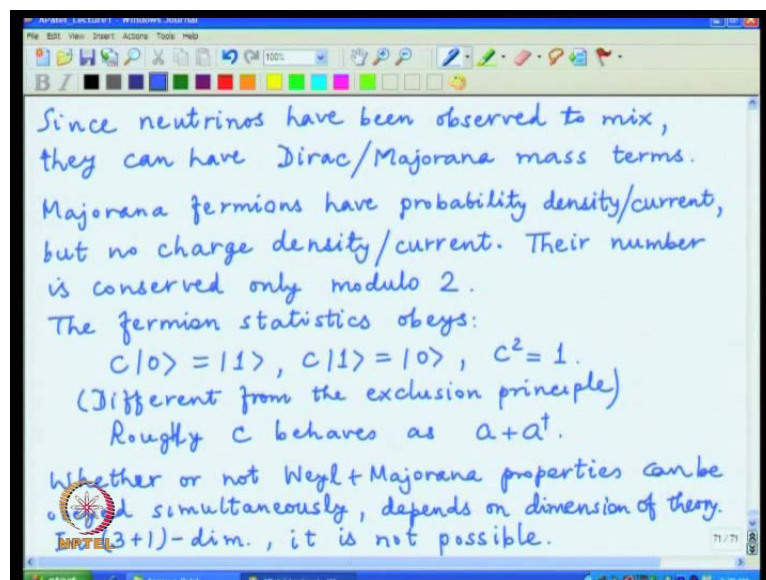 APatel_Lecture1 - Windows Journal
File Edit View Insert Actions Tools Help
100%
B I
Since neutrinos have been observed to mix,
they can have Dirac/Majorana mass terms.
Majorana fermions have probability density/current,
but no charge density/current. Their number
is conserved only modulo 2.
The fermion statistics obeys:
C|0> = |1>, C|1> = |0>, C² = 1.
(Different from the exclusion principle)
Roughly C behaves as a+a†.
Whether or not Weyl + Majorana properties can be
simultaneously, depends on dimension of theory.
(3+1)-dim., it is not possible.
NPTEL
71/71
start